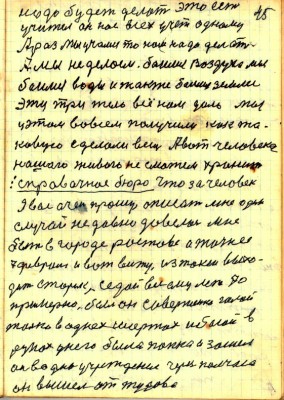 надо будет делать это есть 45
учитель он нас всех учет одному
А раз мы учали то нам надо делать
А мы не делаем. башни воздуха мы
башни воды и также башни земли
Эти три тела всё нам дали мы
у этом во всем получили как та-
кавую сделали вещ А вот человека
нашаго живога не сможем хранить
! справачное бюро что за человек
Я вас очен прошу описать мне один
случай недавно довелось мне
быть в городе ростове а также
7 февраля и вот вижу, из
дит старик, седой ему лет 70
примерно, был он савершено голай
только в одних шортах и босой в
руках у него была папка и зашел
он в одно учреждение через полчаса
он вышел от тудова